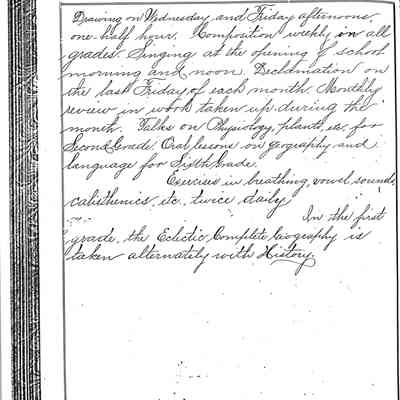 Drawing on Wednesday and Friday afternoons,
one-half hour. Composition weekly in all
grades. Singing at the opening of school
morning and noon. Declamation on
the last Friday of each month. Monthly
review in work taken up during the
month. Talks on Physiology, plants, etc, for
Second Grade. Oral lessons on geography and
language for Sixth Grade.
Exercises in breathing, vowel sounds,
calisthenics, etc. twice daily.
In the first
grade, the Eclectic Complete Geography is
taken alternately with History.